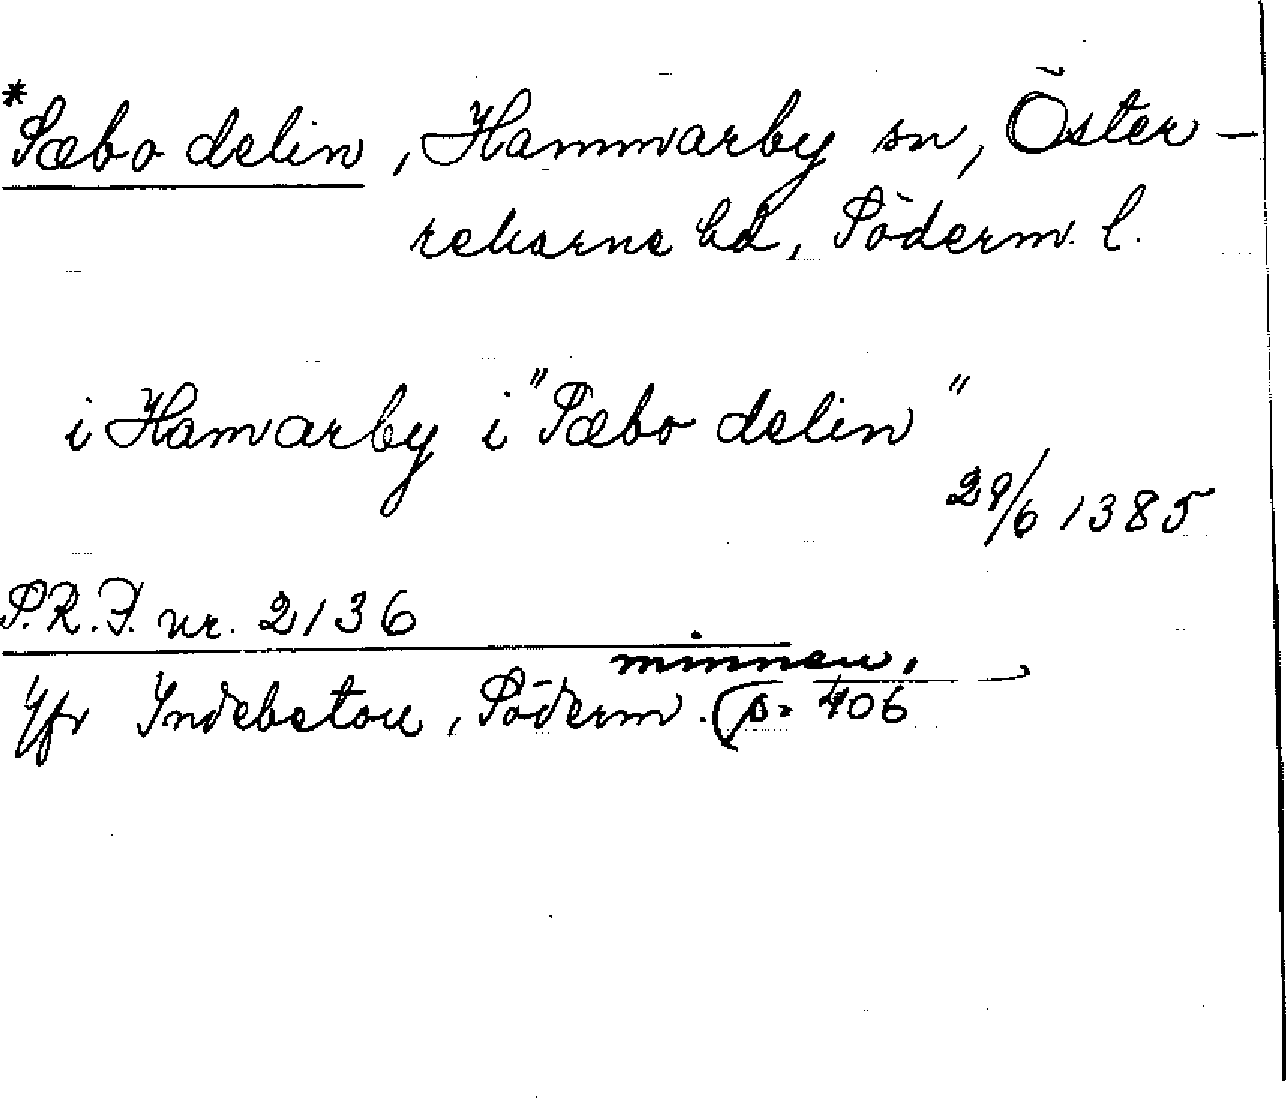 *Sæbo delin, Hammarby sn, Öster-
rekarne hd, Söderm. l.
i Hamarby i "Sæbo delin"
29/6 1385
S.R.P. nr. 2136
minnen,
Jfr Indebetou, Söderm. s. 406